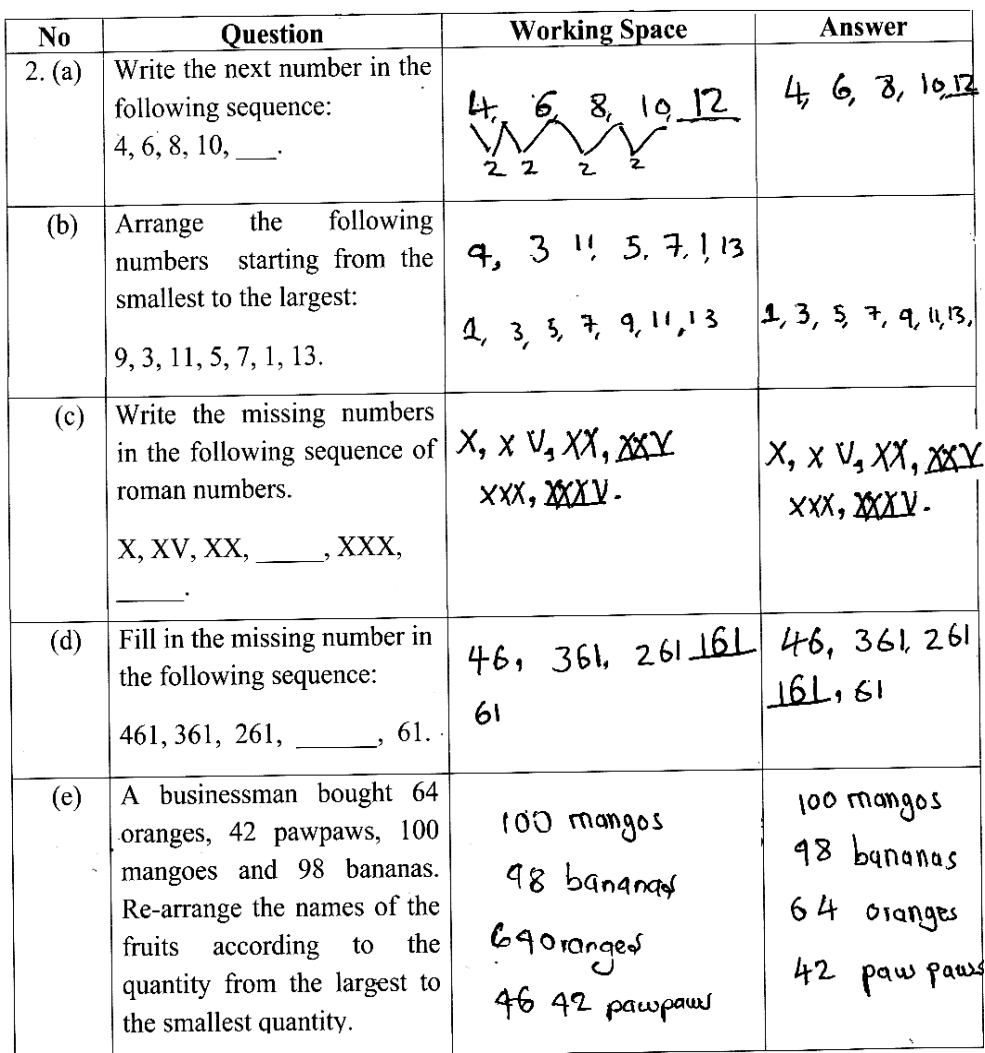 No Question Working Space Answer
2. (a) Write the next number in the
following sequence:
4, 6, 8, 10, ___.
4, 6, 8, 10, 12
2 2 2 2
4, 6, 8, 10, 12
(b) Arrange the following
numbers starting from the
smallest to the largest:
9, 3, 11, 5, 7, 1, 13.
9, 3 11, 5, 7, 1, 13
1, 3, 5, 7, 9, 11, 13
1, 3, 5, 7, 9, 11, 13,
(c) Write the missing numbers
in the following sequence of
roman numbers.
X, XV, XX, _____, XXX,
_____.
X, XV, XX, XXV
XXX, XXXV.
X, XV, XX, XXV
XXX, XXXV.
(d) Fill in the missing number in
the following sequence:
461, 361, 261, ______, 61.
46, 361, 261 161
61
46, 361, 261
161, 61
(e) A businessman bought 64
oranges, 42 pawpaws, 100
mangoes and 98 bananas.
Re-arrange the names of the
fruits according to the
quantity from the largest to
the smallest quantity.
100 mangos
98 bananas
64 oranges
46 42 pawpaws
100 mangos
98 bananas
64 oranges
42 paw paws